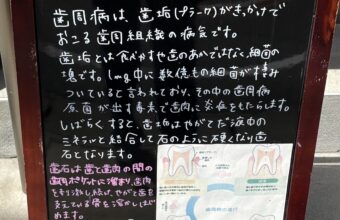 歯周病は、歯垢(プラーク)がきっかけで
おこる歯周組織の病気です。
歯垢とは食べかすや歯のあかではなく、細菌の
塊です。1mg中に数億もの細菌がすみ
ついていると言われており、その中の歯周病
原菌が出す毒素で歯肉に炎症をもたらします。
しばらくすると、歯垢はやがてだ液中の
ミネラルと結合して石のように硬くなり歯
石となります。
歯石は歯と歯肉の間の
歯周ポケットに溜まり、歯肉
を刺激し続け、やがて歯を
支えている骨を溶かしはじ
めます。
歯周病の進行